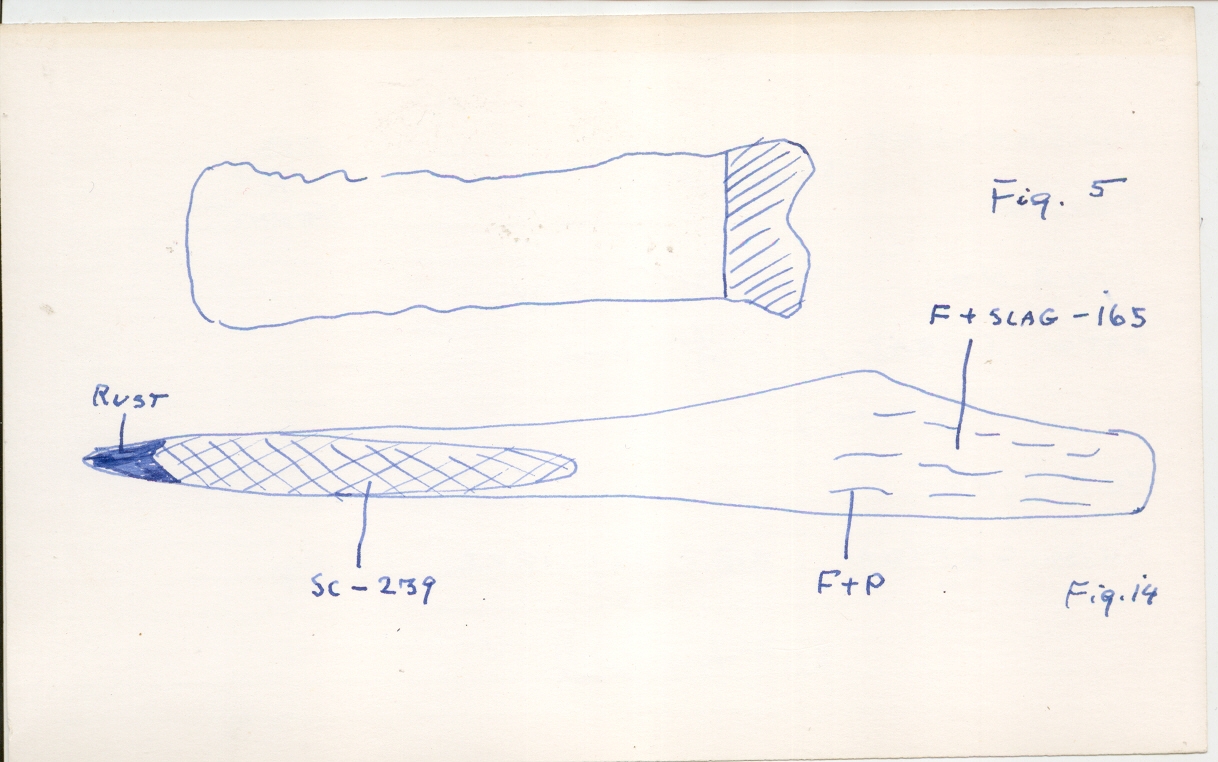 Fig. 5
F + SLAG - 165
RUST
SC - 239
F+P
Fig. 14